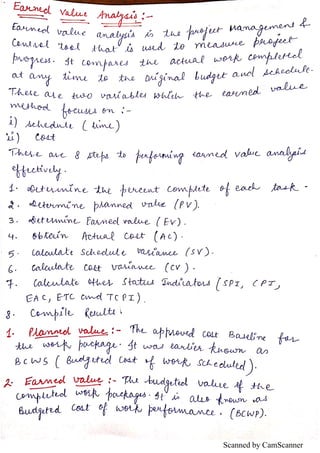 Earned Value Analysis :-
Earned value analysis is the project management &
Control tool that is used to measure project
progress. It compares the actual work completed
at any time to the original budget and schedule.
There are two variables which the earned value
method focuses on :-
i) schedule (time)
ii) Cost
There are 8 steps to performing earned value analysis
effectively.
1. Determine the percent complete of each task.
2. Determine planned value (PV).
3. Determine Earned value (EV).
4. Obtain Actual Cost (AC).
5. Calculate Schedule variance (SV).
6. Calculate cost variance (CV).
7. Calculate other Status Indicators (SPI, CPI,
EAC, ETC and TCPI).
8. Compile Results.
1. Planned value :- The approved cost Baseline for
the work package. It was earlier known as
BCWS (Budgeted Cost of work Scheduled).
2. Earned value :- The budgeted value of the
completed work packages. It is also known as
Budgeted Cost of work performance. (BCWP).
Scanned by CamScanner